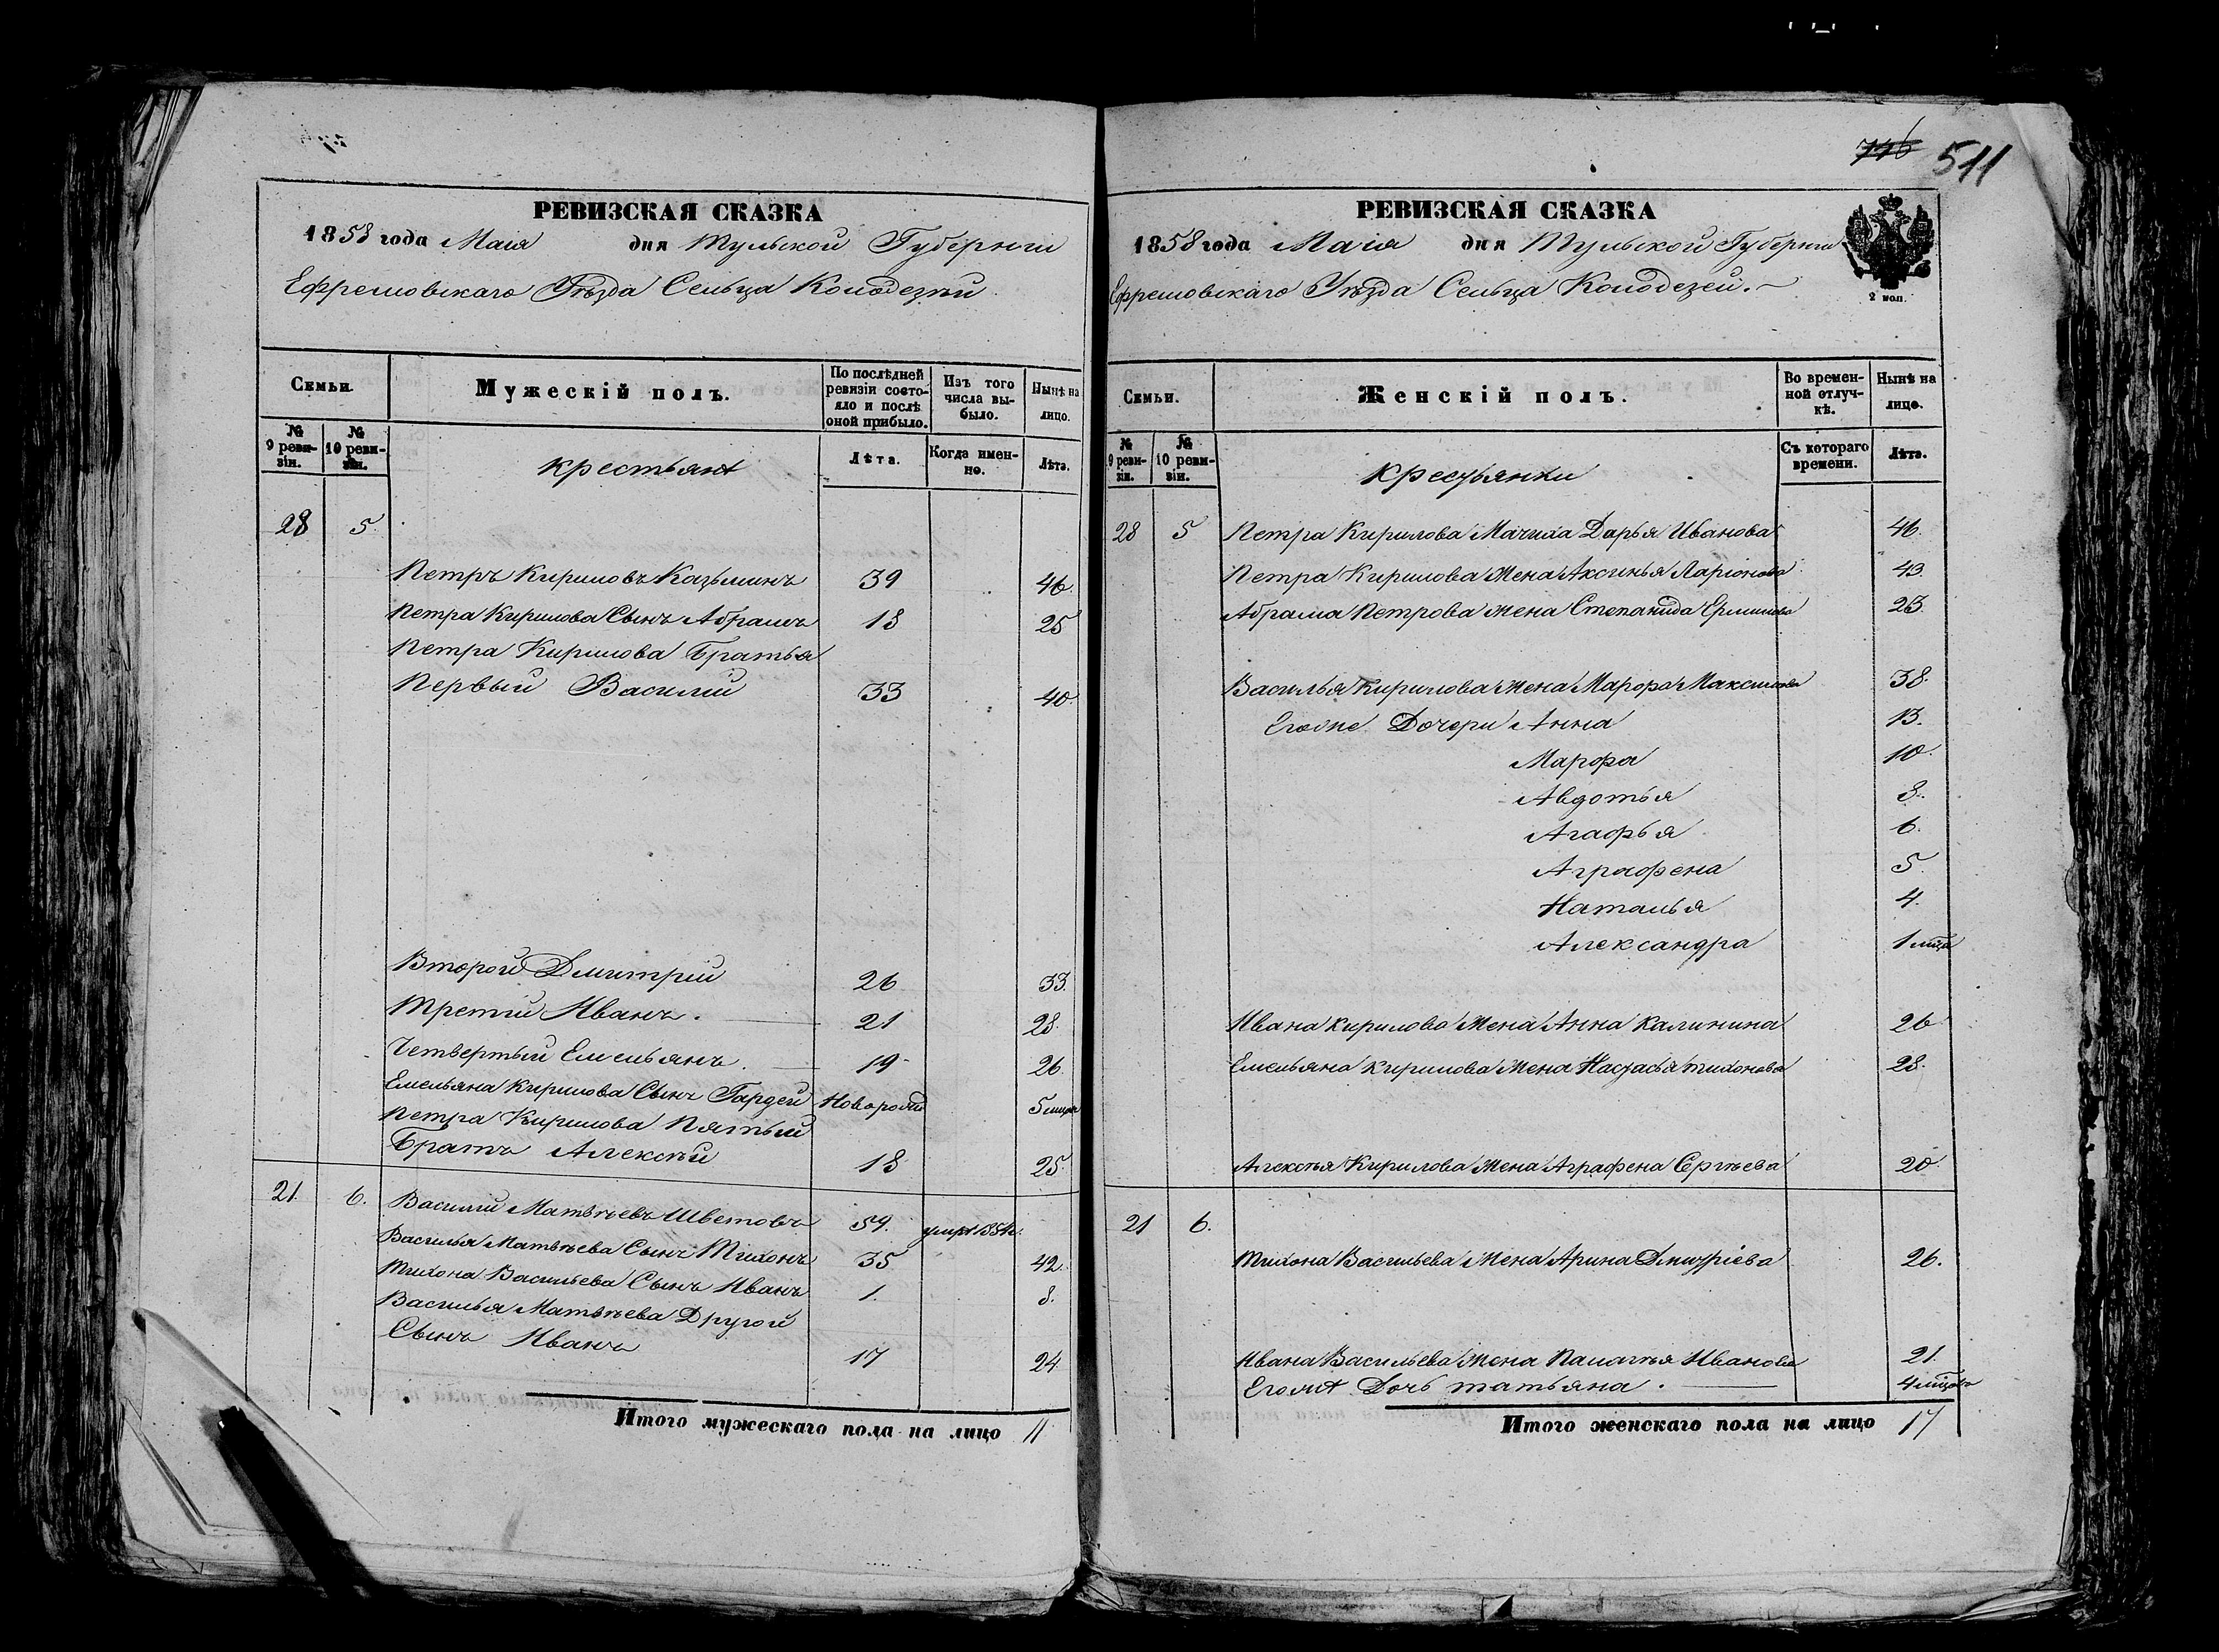 РЕВИЗСКАЯ СКАЗКА
1858 года Маія дня Тульской Губерніи
Ефремовскаго Уѣзда Сельца Колодезѣй
Семьи. Мужескій полъ. По послѣдней ревизіи состояло и послѣ оной прибыло. Изъ того числа выбыло. Нынѣ на лицо.
№ 9 ревизіи. № 10 ревизіи. крестьянѣ Лѣта. Когда именно. Лѣта.
28 5.
Петръ Кириловъ Казьминъ 39 46.
Петра Кирилова Сынъ Абрамъ 18 25
Петра Кирилова Братья
Первый Василій 33 40.
Второй Дмитрій 26 33.
Третій Иванъ. 21 28.
Четвертый Емельянъ. 19 26.
Емельяна Кирилова Сынъ Гардей Новорож 5 мцов
Петра Кирилова Пятый
Братъ Алексѣй 18 25.
21. 6. Василій Матвѣевъ Шветовъ 59. умре 1854 г.
Василья Матвѣева Сынъ Тихонъ 35 42.
Тихона Васильева Сынъ Иванъ 1. 8.
Василья Матвѣева Другой
Сынъ Иванъ 17 24
Итого мужескаго пола на лицо 11
746 511
РЕВИЗСКАЯ СКАЗКА
1858 года Маія дня Тульской Губерніи
Ефремовскаго Уѣзда Сельца Колодезей.
2 коп.
Семьи. Женскій полъ. Во временной отлучкѣ. Нынѣ на лицо.
№ 9 ревизіи. № 10 ревизіи. крестьянки Съ котораго времени. Лѣта.
28 5 Петра Кирилова Мачиха Дарья Иванова 46.
Петра Кирилова Жена Аксинья Ларіонова 43.
Абрама Петрова жена Степанида Ермилова 23.
Василья Кирилова Жена Марфа Максимова 38.
Егоже Дочери Анна 13.
Марфа 10.
Авдотья 8.
Агафья 6.
Аграфена 5.
Наталья 4.
Александра 1 мца
Ивана Кирилова Жена Анна Калинина 26
Емельяна Кирилова Жена Настасья Тихонова 28.
Алексѣя Кирилова Жена Аграфена Сергѣева 20.
21 6.
Тихона Васильева Жена Арина Дмитріева 26.
Ивана Васильева Жена Палагѣя Иванова 21.
Егожѣ Дочь татьяна. 4 мцовъ
Итого женскаго пола на лицо 17